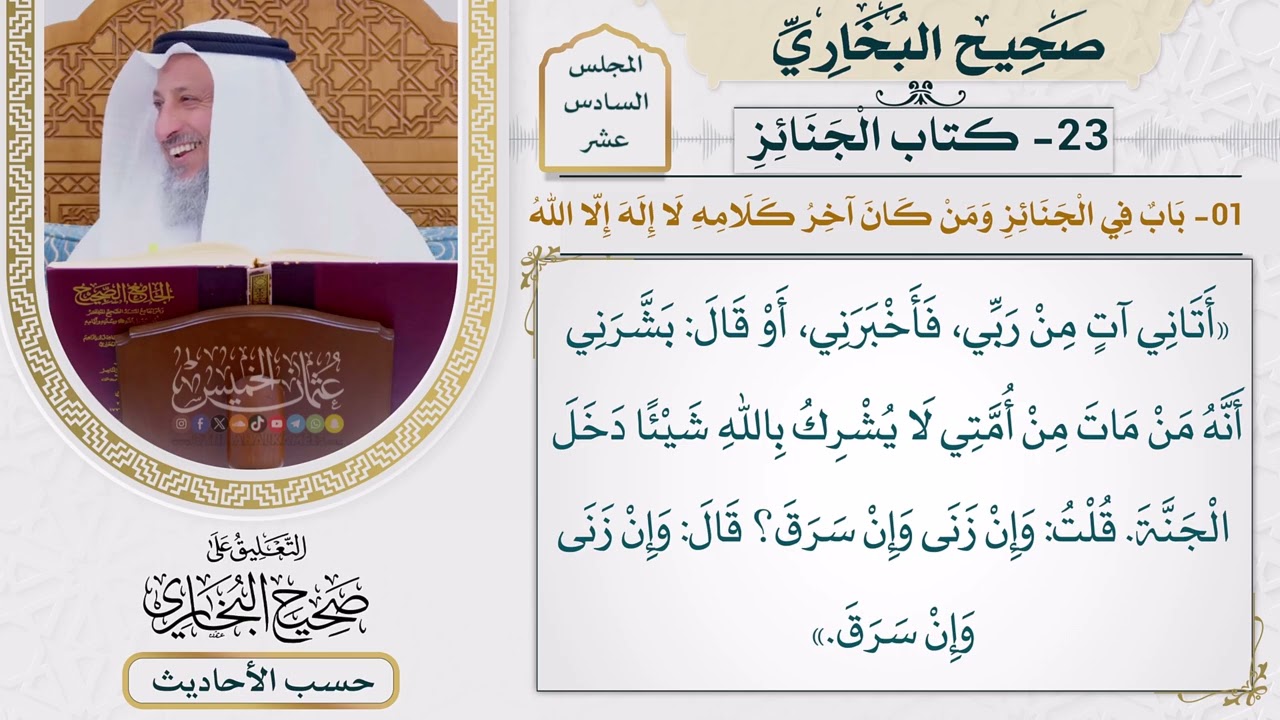 صَحِيح البُخَارِيِّ
23- كتاب الْجَنَائِزِ
المجلس
السادس
عشر
01- بَابٌ فِي الْجَنَائِزِ وَمَنْ كَانَ آخِرُ كَلَامِهِ لَا إِلَهَ إِلَّا اللهُ
«أَتَانِي آتٍ مِنْ رَبِّي، فَأَخْبَرَنِي، أَوْ قَالَ: بَشَّرَنِي
أَنَّهُ مَنْ مَاتَ مِنْ أُمَّتِي لَا يُشْرِكُ بِاللهِ شَيْئًا دَخَلَ
الْجَنَّةَ. قُلْتُ: وَإِنْ زَنَى وَإِنْ سَرَقَ؟ قَالَ: وَإِنْ زَنَى
وَإِنْ سَرَقَ.»
الجامع الصحيح
عُثمان الخميس
التَّعْلِيقُ عَلَى
صَحِيحِ البُخَارِي
حسب الأحاديث